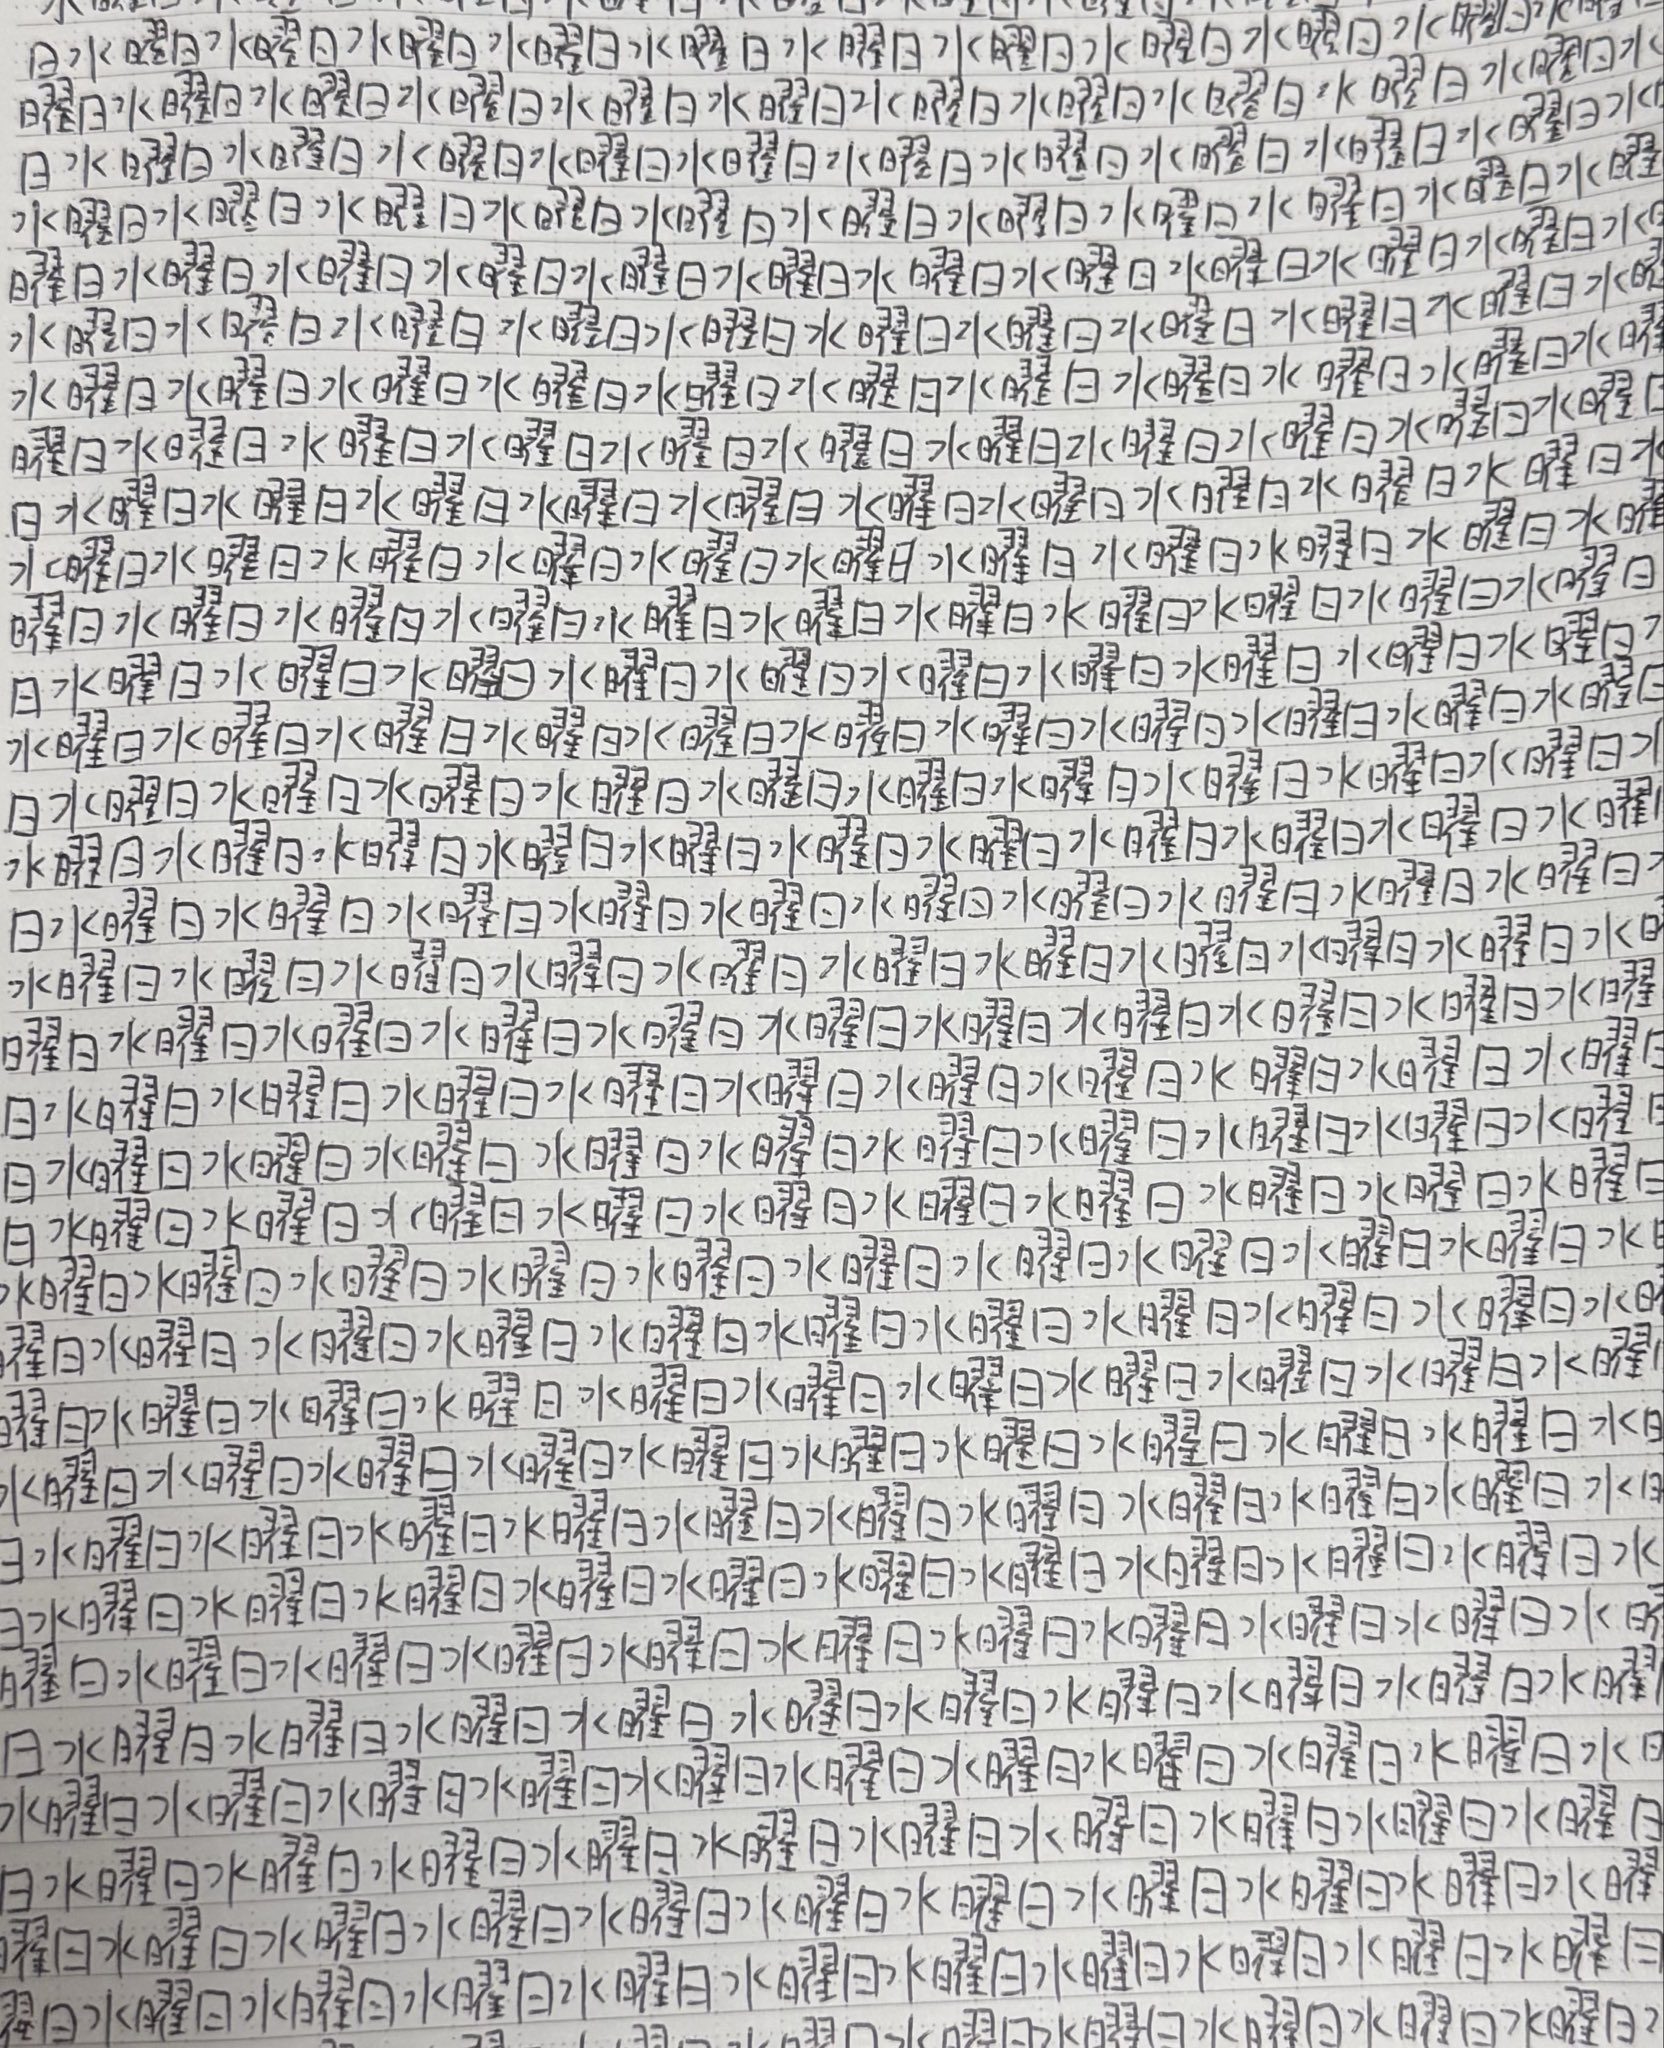 日水曜日水曜日水曜日水曜日水曜日水曜日水曜日水曜日水曜日水曜日水曜
曜日水曜日水曜日水曜日水曜日水曜日水曜日水曜日水曜日水曜日水曜日水
日水曜日水曜日水曜日水曜日水曜日水曜日水曜日水曜日水曜日水曜日水
水曜日水曜日水曜日水曜日水曜日水曜日水曜日水曜日水曜日水曜日水曜
曜日水曜日水曜日水曜日水曜日水曜日水曜日水曜日水曜日水曜日水曜日水
水曜日水曜日水曜日水曜日水曜日水曜日水曜日水曜日水曜日水曜日水曜
水曜日水曜日水曜日水曜日水曜日水曜日水曜日水曜日水曜日水曜日水曜
曜日水曜日水曜日水曜日水曜日水曜日水曜日水曜日水曜日水曜日水曜日
日水曜日水曜日水曜日水曜日水曜日水曜日水曜日水曜日水曜日水曜日水
水曜日水曜日水曜日水曜日水曜日水曜日水曜日水曜日水曜日水曜日水曜
曜日水曜日水曜日水曜日水曜日水曜日水曜日水曜日水曜日水曜日水曜日
日水曜日水曜日水曜日水曜日水曜日水曜日水曜日水曜日水曜日水曜日水
水曜日水曜日水曜日水曜日水曜日水曜日水曜日水曜日水曜日水曜日水曜日
日水曜日水曜日水曜日水曜日水曜日水曜日水曜日水曜日水曜日水曜日水
水曜日水曜日水曜日水曜日水曜日水曜日水曜日水曜日水曜日水曜日水曜
日水曜日水曜日水曜日水曜日水曜日水曜日水曜日水曜日水曜日水曜日水
水曜日水曜日水曜日水曜日水曜日水曜日水曜日水曜日水曜日水曜日水
曜日水曜日水曜日水曜日水曜日水曜日水曜日水曜日水曜日水曜日水曜
日水曜日水曜日水曜日水曜日水曜日水曜日水曜日水曜日水曜日水曜日
日水曜日水曜日水曜日水曜日水曜日水曜日水曜日水曜日水曜日水曜日
日水曜日水曜日水曜日水曜日水曜日水曜日水曜日水曜日水曜日水曜日
水曜日水曜日水曜日水曜日水曜日水曜日水曜日水曜日水曜日水曜日水
曜日水曜日水曜日水曜日水曜日水曜日水曜日水曜日水曜日水曜日水
曜日水曜日水曜日水曜日水曜日水曜日水曜日水曜日水曜日水曜日水曜
水曜日水曜日水曜日水曜日水曜日水曜日水曜日水曜日水曜日水曜日水
日水曜日水曜日水曜日水曜日水曜日水曜日水曜日水曜日水曜日水曜日水
日水曜日水曜日水曜日水曜日水曜日水曜日水曜日水曜日水曜日水曜日水
曜日水曜日水曜日水曜日水曜日水曜日水曜日水曜日水曜日水曜日水曜
日水曜日水曜日水曜日水曜日水曜日水曜日水曜日水曜日水曜日水曜
水曜日水曜日水曜日水曜日水曜日水曜日水曜日水曜日水曜日水曜日水
日水曜日水曜日水曜日水曜日水曜日水曜日水曜日水曜日水曜日水曜日
曜日水曜日水曜日水曜日水曜日水曜日水曜日水曜日水曜日水曜日水曜
曜日水曜日水曜日水曜日水曜日水曜日水曜日水曜日水曜日水曜日水曜日